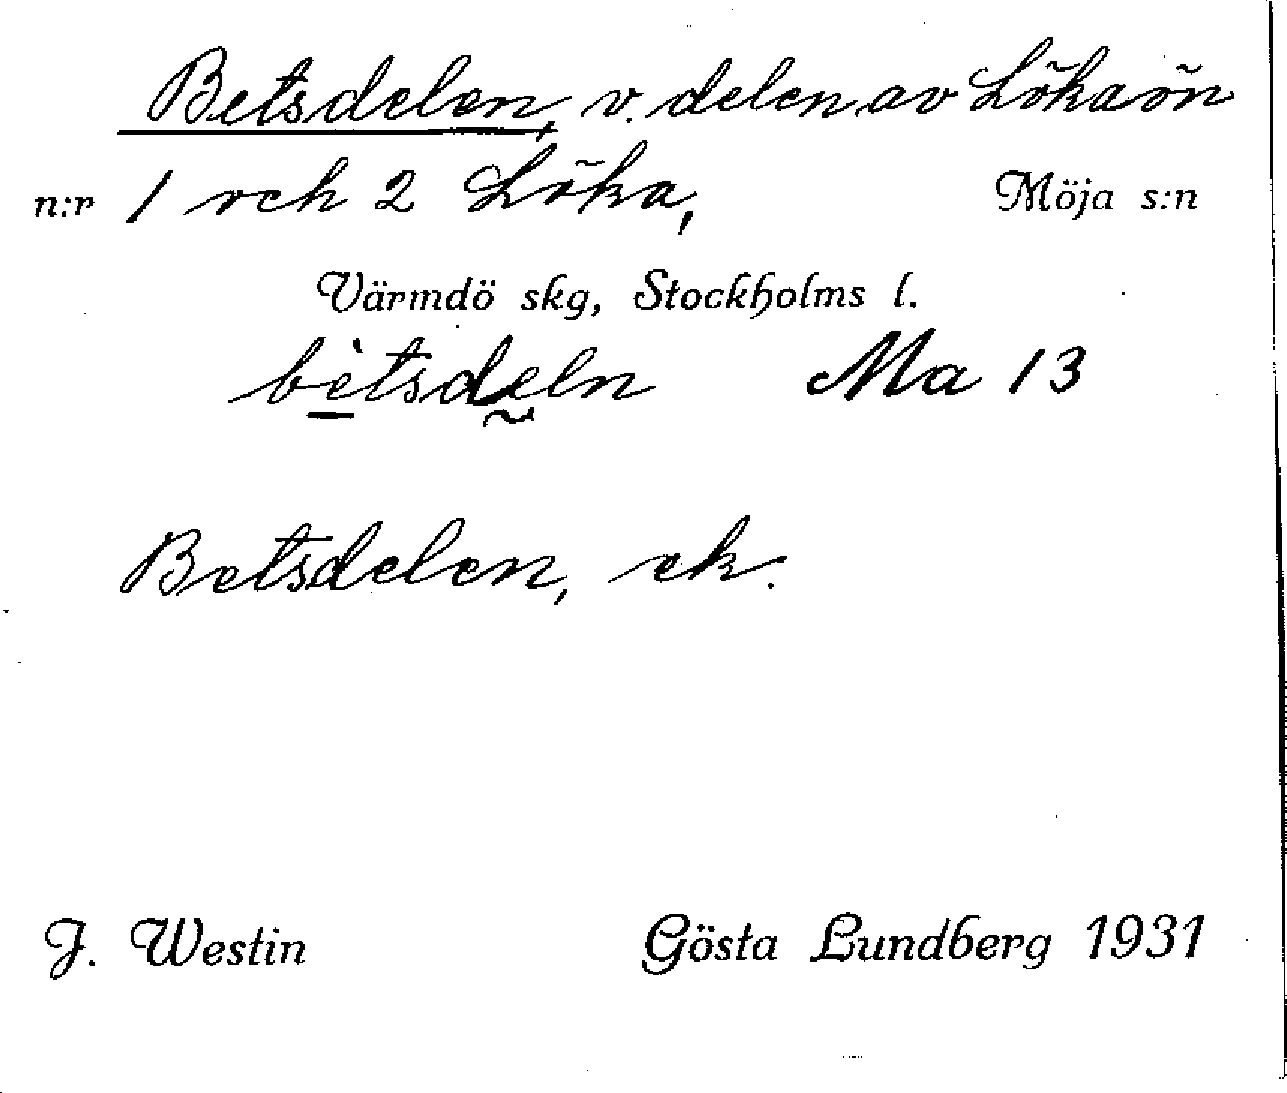 Betsdelen, v. delen av Lökaön
n:r 1 och 2 Löka, Möja s:n
Värmdö skg, Stockholms l.
bètsdeln Ma 13
Betsdelen, ek.
J. Westin Gösta Lundberg 1931